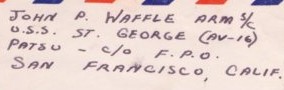 JOHN P. WAFFLE ARM 3/C
U.S.S. ST. GEORGE (AV-16)
PATSU - C/O F.P.O.
SAN FRANCISCO, CALIF.